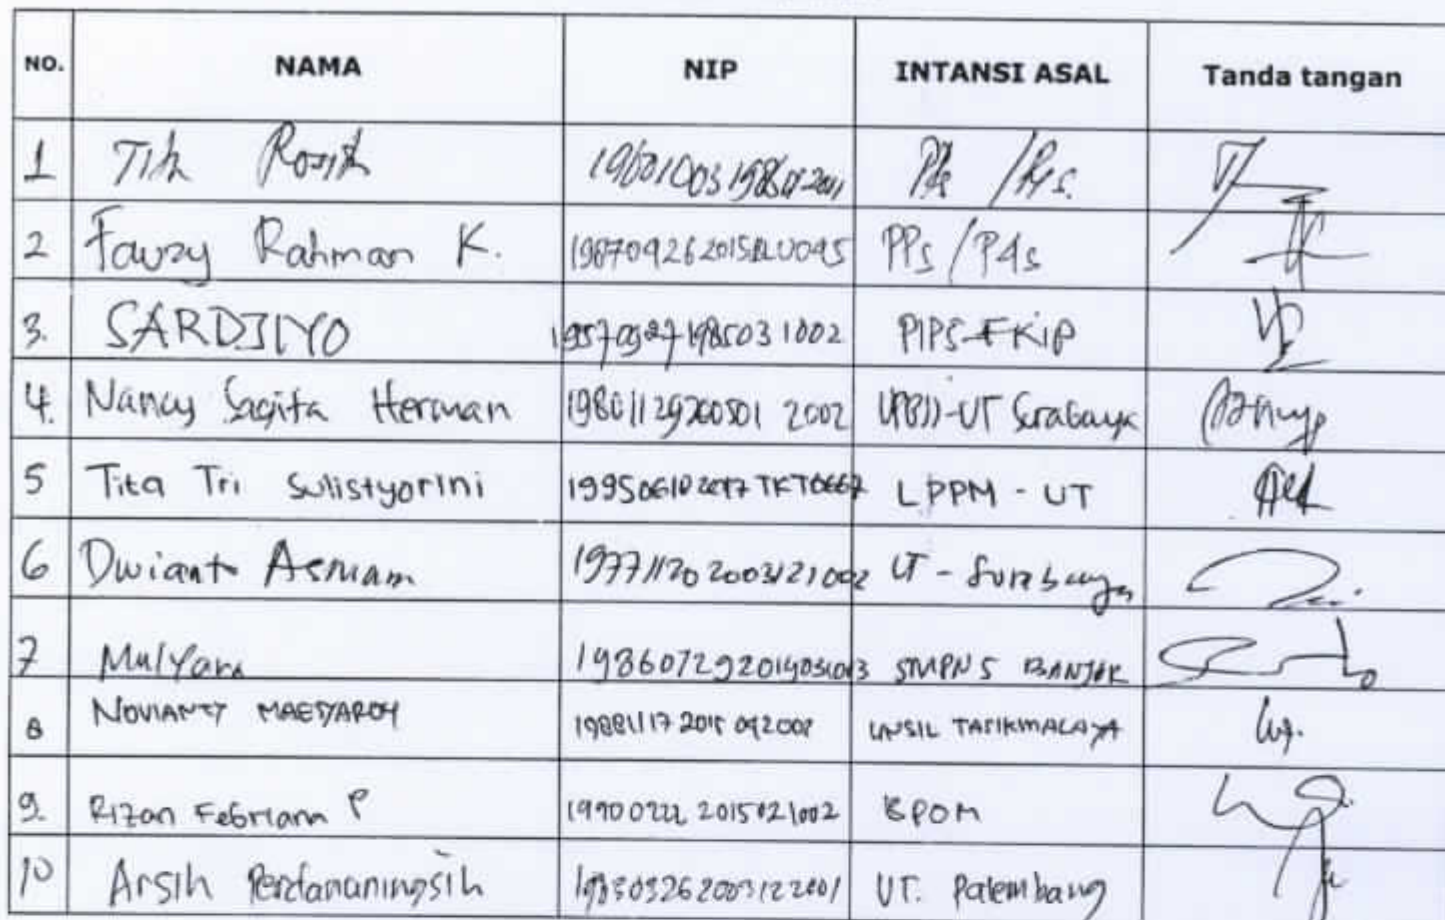 NO. NAMA NIP INTANSI ASAL Tanda tangan
1 Titi
2 Fauzy Rahman K. 198709262015BLU095 PPs / P4s
3. SARDJIYO 195709271985031002 PIPS-FKIP
4. Nancy Sagita Herman 19801129200501 2002 UPBJJ-UT Surabaya
5 Tita Tri Sulistyorini 19950610 2017 TKT0667 LPPM - UT
6 Dwianto Asmam 19771120 200312 1002 UT - Surabaya
7 Mulyara 198607292014031003 SMPN 5 BANJAR
8 NOVIANTY 19881117 2015 042002 UNSIL TASIKMALAYA
9. Rizan Febriana P 19900222 201502 1002 BPOM
10 Arsih Perdananingsih 198303262003122001 UT. Palembang